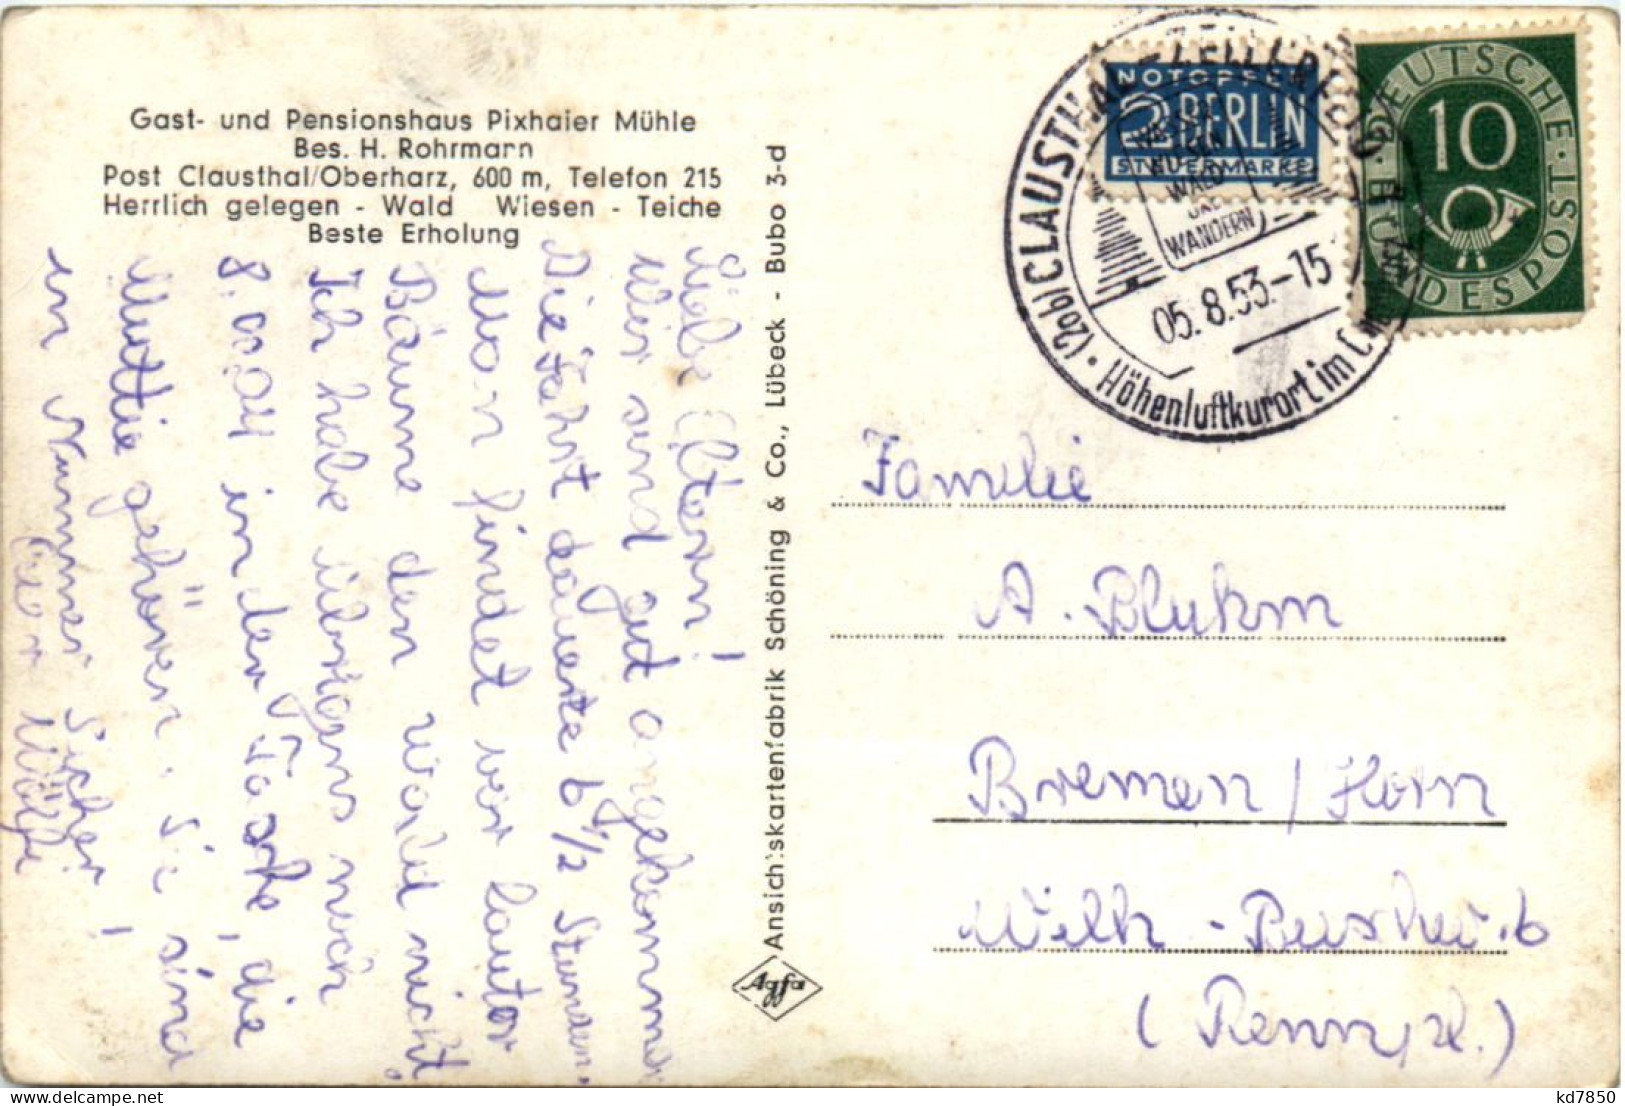 Gast- und Pensionshaus Pixhaier Mühle
Bes. H. Rohrmann
Post Clausthal/Oberharz, 600 m, Telefon 215
Herrlich gelegen - Wald Wiesen - Teiche
Beste Erholung
Liebe Eltern!
Wir sind gut angekommen
Die Fahrt dauerte 6 1/2 Stunden.
Man findet vor lauter
Bäume den Wald nicht.
Ich habe übrigens noch
8.00 in der Tasche, die
Mutti gehören. Sie sind
in Nummer Sicher!
Euer
Ansichtskartenfabrik Schöning & Co., Lübeck - Bubo 3-d
Agfa
NOTOPFER
2 BERLIN
STEUERMARKE
DEUTSCHE BUNDESPOST
10
(20b) CLAUSTHAL-ZELLERFELD
WALD
UND
WANDERN
05.8.53.-15
Höhenluftkurort im
Familie
A. Blukm
Bremen / Horn
6
kd7850